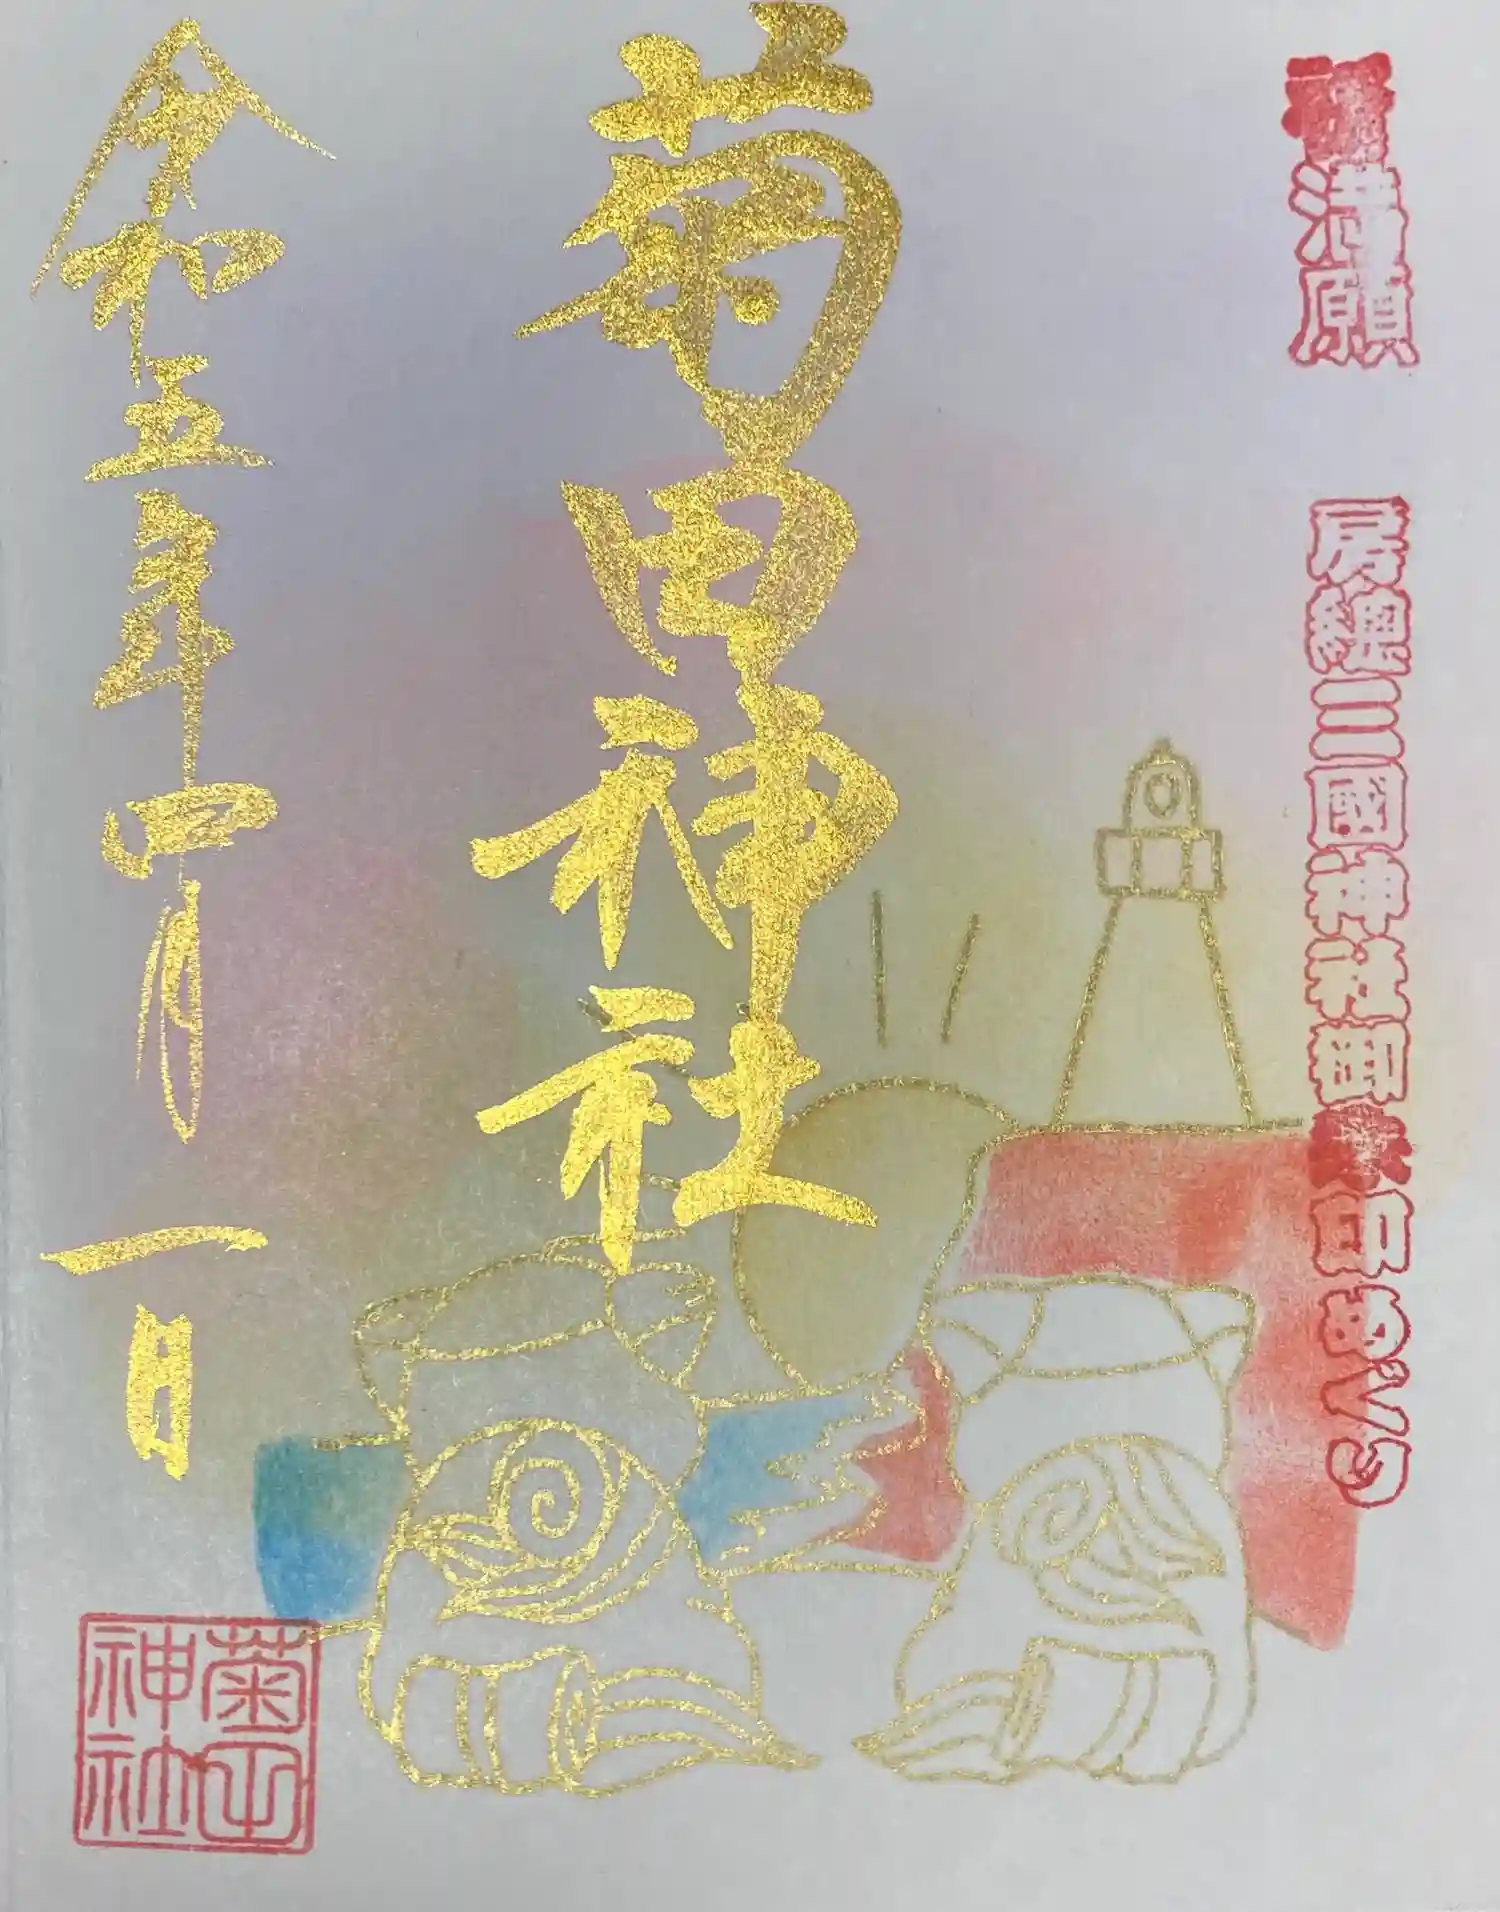 満願
房總三國神社御朱印めぐり
菊田神社
令和五年四月一日
菊田
神社